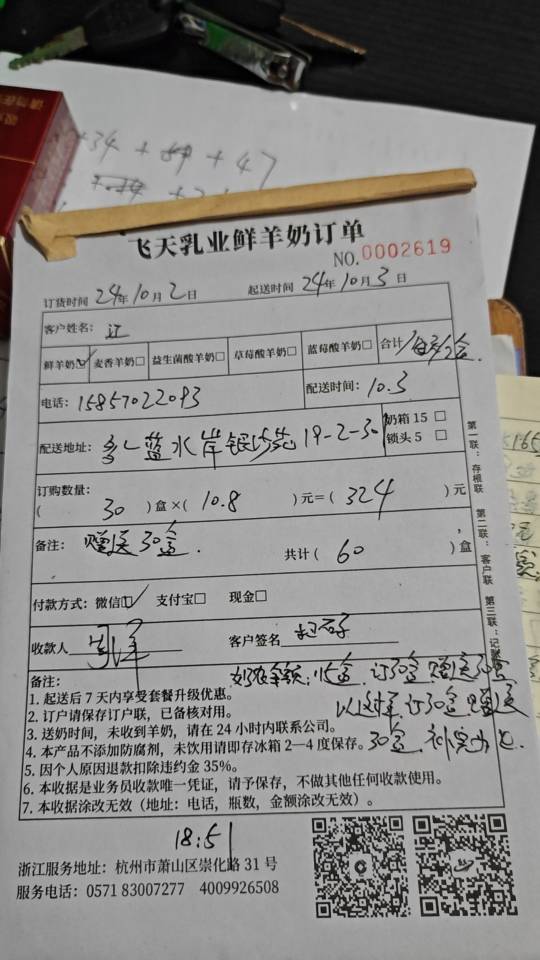 +34 + + 47
飞天乳业鲜羊奶订单
NO.0002619
订货时间 24年10月2日 起送时间 24年10月3日
客户姓名: 江
鲜羊奶☑ 麦香羊奶□ 益生菌酸羊奶□ 草莓酸羊奶□ 蓝莓酸羊奶□ 合计 /每天/2盒.
电话: 15857022093 配送时间: 10.3
配送地址: 蓝水岸银沙苑 19-2-30 奶箱 15 □
锁头 5 □
订购数量:
( 30 ) 盒 ×( 10.8 ) 元=( 324 ) 元
备注: 赠送30盒. 共计( 60 ) 盒
付款方式: 微信☑ 支付宝□ 现金□
收款人 客户签名
备注: 15盒 订30盒 赠送30盒
1. 起送后 7 天内享受套餐升级优惠。
以 订30盒 赠送
2. 订户请保存订户联，已备核对用。
3. 送奶时间，未收到羊奶，请在 24 小时内联系公司。
30盒.
4. 本产品不添加防腐剂，未饮用请即存冰箱 2—4 度保存。
5. 因个人原因退款扣除违约金 35%。
6. 本收据是业务员收款唯一凭证，请予保存，不做其他任何收款使用。
7. 本收据涂改无效（地址: 电话，瓶数，金额涂改无效）。
第一联: 存根联 第二联: 客户联 第三联: 记账联
18:51
浙江服务地址: 杭州市萧山区崇化路 31 号
服务电话: 0571 83007277 4009926508